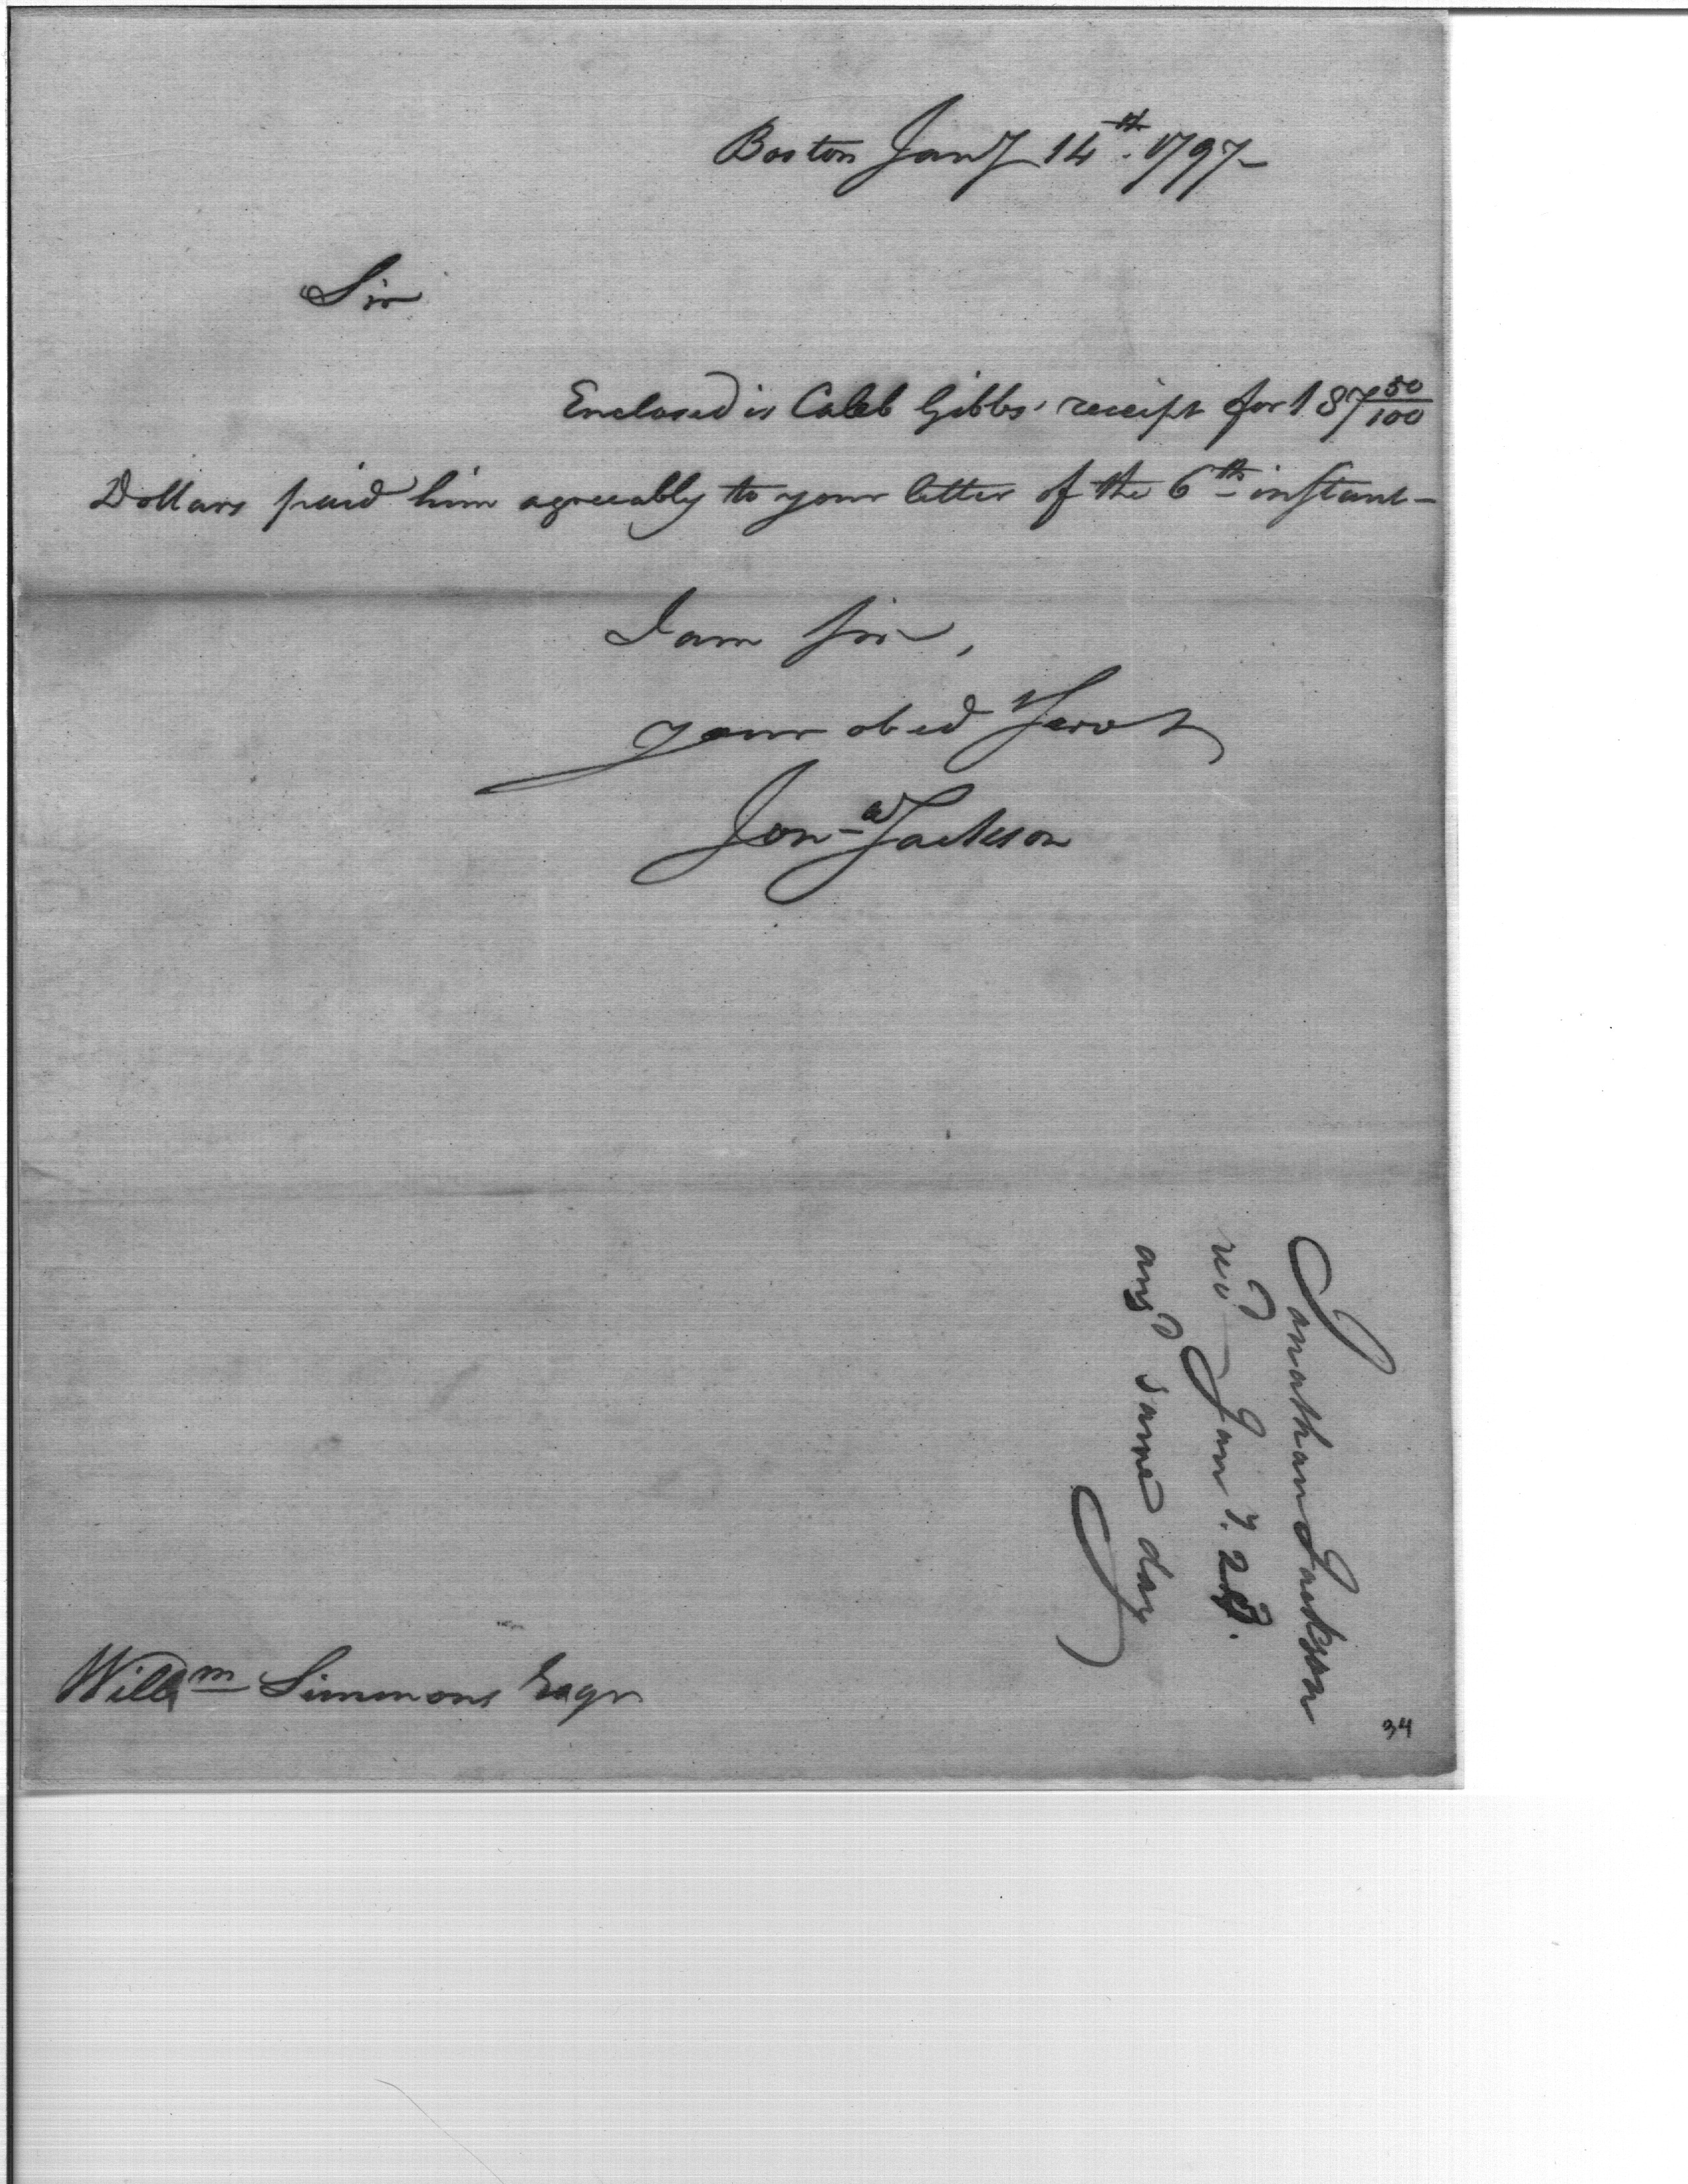 Boston Jany 14th. 1797-
Sir
Enclosed is Caleb Gibbs' receipt for 187 50/100
Dollars paid him agreeably to your letter of the 6th instant-
I am sir,
your obed Servt
Jona Jackson
Jonathan Jackson
recd Jany.
ansd same day
Willm Simmons Esqr
34